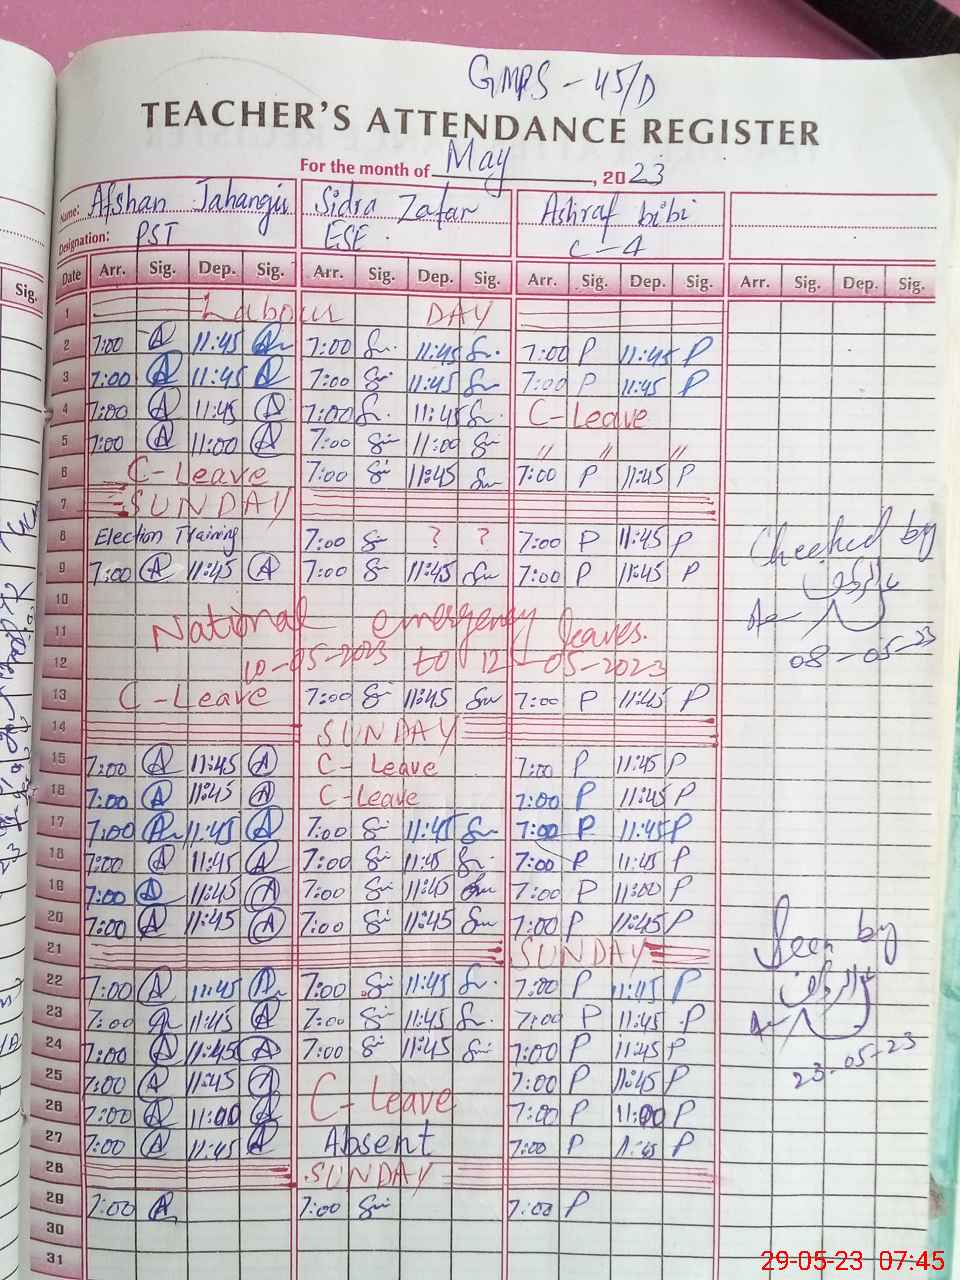 GMPS - 45/D
TEACHER'S ATTENDANCE REGISTER
For the month of May, 2023
Name: Afshan Jahangir Sidra Zafar Ashraf bibi
Designation: PST ESE. C-4
Sig. Date Arr. Sig. Dep. Sig. Arr. Sig. Dep. Sig. Arr. Sig. Dep. Sig. Arr. Sig. Dep. Sig.
1 Labour DAY
2 7:00 A 11:45 A 7:00 11:45 7:00 P 11:45 P
3 7:00 A 11:45 A 7:00 11:45 7:00 P 11:45 P
4 7:00 A 11:45 A 7:00 11:45 C-Leave
5 7:00 A 11:00 A 7:00 11:00 " " "
6 C-Leave 7:00 11:45 7:00 P 11:45 P
7 SUNDAY
8 Election Training 7:00 ? ? 7:00 P 11:45 P
Checked by
9 7:00 A 11:45 A 7:00 11:45 7:00 P 11:45 P
10
11 National emergency leaves.
12 10-05-2023 to 12-05-2023
08-05-23
13 C-Leave 7:00 11:45 7:00 P 11:45 P
14 SUNDAY
15 7:00 A 11:45 A C-Leave 7:00 P 11:45 P
16 7:00 A 11:45 A C-Leave 7:00 P 11:45 P
17 7:00 A 11:45 A 7:00 11:45 7:00 P 11:45 P
18 7:00 A 11:45 A 7:00 11:45 7:00 P 11:45 P
19 7:00 A 11:45 A 7:00 11:45 7:00 P 11:00 P
20 7:00 A 11:45 A 7:00 11:45 7:00 P 11:45 P
Seen by
21 SUNDAY
22 7:00 A 11:45 A 7:00 11:45 7:00 P 11:45 P
23 7:00 A 11:45 A 7:00 11:45 7:00 P 11:45 P
24 7:00 A 11:45 A 7:00 11:45 7:00 P 11:45 P
23-05-23
25 7:00 A 11:45 A C-Leave 7:00 P 11:45 P
26 7:00 A 11:00 A 7:00 P 11:00 P
27 7:00 A 11:45 A Absent 7:00 P 11:45 P
28 SUNDAY
29 7:00 A 7:00 7:00 P
30
31
29-05-23 07:45